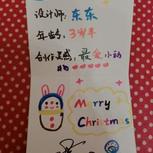 设计师:东东
年龄:3岁半
创作灵感:最爱小动
物
Merry
Christmas